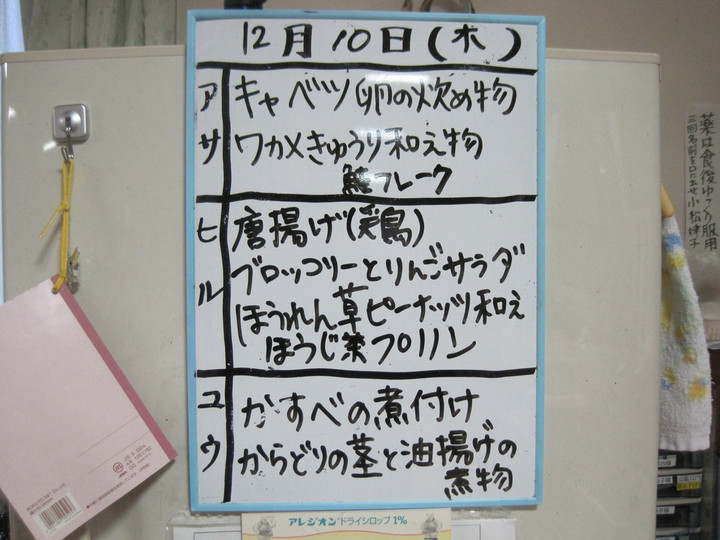 12月10日(木)
アサ
キャベツ卵の炒め物
ワカメきゅうり和え物
鮭フレーク
ヒル
唐揚げ(鶏)
ブロッコリーとりんごサラダ
ほうれん草ピーナッツ和え
ほうじ茶プリン
ユウ
かすべの煮付け
からどりの茎と油揚げの
煮物
アレジオンドライシロップ1%
薬は食後ゆっくり服用